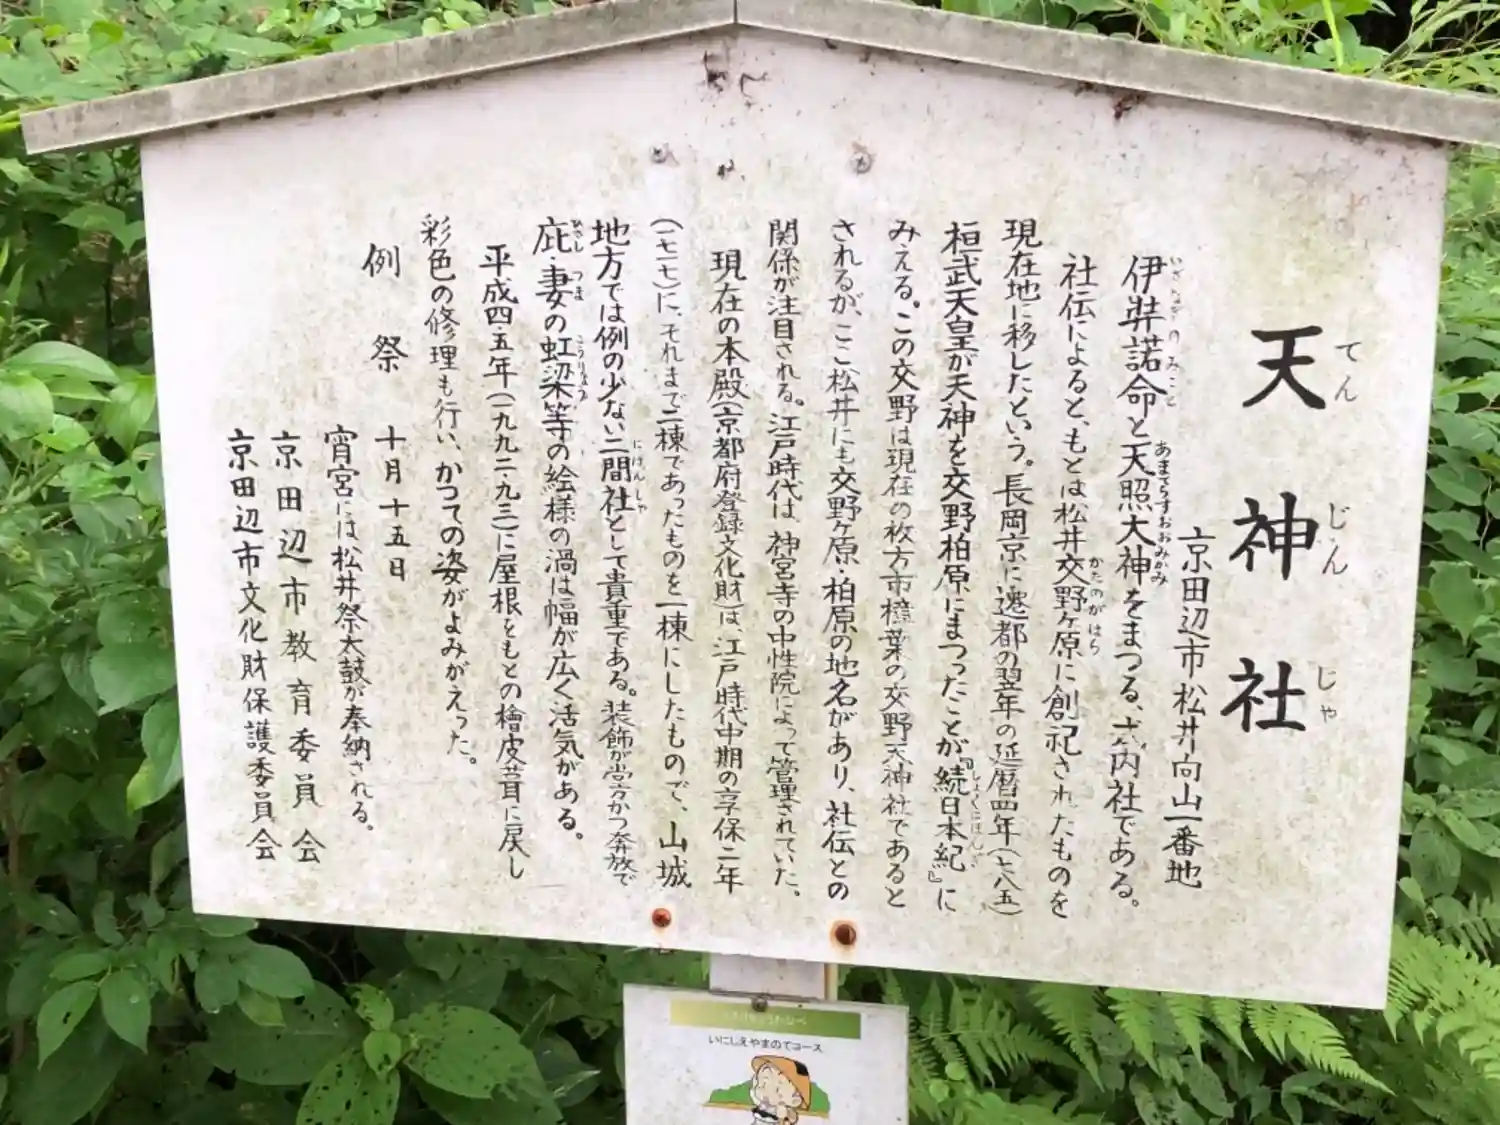 天神社
てんじんじゃ
京田辺市松井向山一番地
伊弉諾命と天照大神をまつる、式内社である。
いざなぎのみこと あまてらすおおみかみ
社伝によると、もとは松井交野ヶ原に創祀されたものを
かたのがはら
現在地に移したという。長岡京に遷都の翌年の延暦四年(七八五)
桓武天皇が天神を交野柏原にまつったことが『続日本紀』に
しょくにほんぎ
みえる。この交野は現在の枚方市樟葉の交野天神社であると
されるが、ここ松井にも交野ヶ原、柏原の地名があり、社伝との
関係が注目される。江戸時代は、神宮寺の中性院によって管理されていた。
現在の本殿(京都府登録文化財)は、江戸時代中期の享保二年
(一七一七)に、それまで二棟であったものを一棟にしたもので、山城
地方では例の少ない二間社として貴重である。装飾が堂々かつ奔放で
にけんしゃ
庇・妻の虹梁等の絵様の渦は幅が広く活気がある。
ひさし つま こうりょう
平成四・五年(一九九二・九三)に屋根をもとの檜皮葺に戻し
彩色の修理も行い、かつての姿がよみがえった。
例祭 十月十五日
宵宮には松井祭太鼓が奉納される。
京田辺市教育委員会
京田辺市文化財保護委員会
いにしえやまのてコース